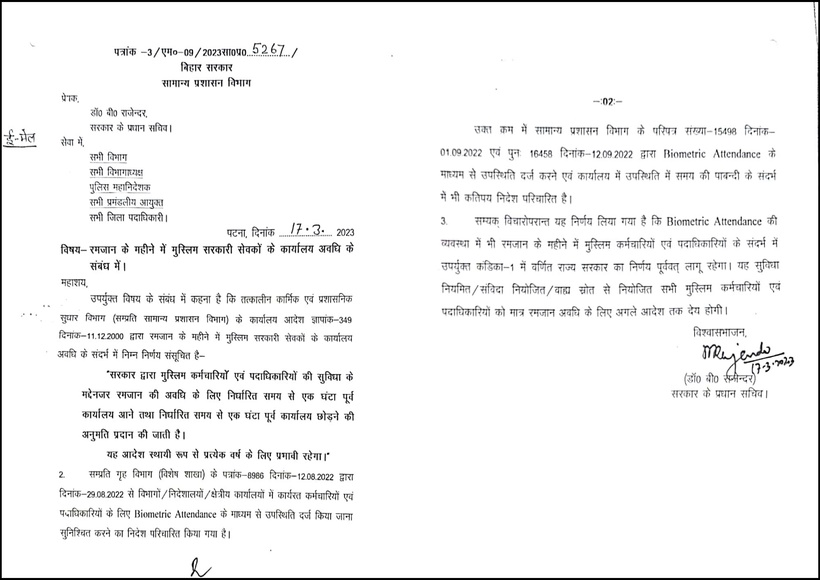 पत्रांक -3/एम०-09/2023सा0प्र0 5267/
बिहार सरकार
सामान्य प्रशासन विभाग
प्रेषक,
डॉ0 बी0 राजेन्दर,
सरकार के प्रधान सचिव।
ई-मेल
सेवा में,
सभी विभाग
सभी विभागाध्यक्ष
पुलिस महानिदेशक
सभी प्रमंडलीय आयुक्त
सभी जिला पदाधिकारी।
पटना, दिनांक 17.3. 2023
विषय- रमजान के महीने में मुस्लिम सरकारी सेवकों के कार्यालय अवधि के
संबंध में।
महाशय,
उपर्युक्त विषय के संबंध में कहना है कि तत्कालीन कार्मिक एवं प्रशासनिक
सुधार विभाग (सम्प्रति सामान्य प्रशासन विभाग) के कार्यालय आदेश ज्ञापांक-349
दिनांक-11.12.2000 द्वारा रमजान के महीने में मुस्लिम सरकारी सेवकों के कार्यालय
अवधि के संदर्भ में निम्न निर्णय संसूचित है-
"सरकार द्वारा मुस्लिम कर्मचारियों एवं पदाधिकारियों की सुविधा के
मद्देनजर रमजान की अवधि के लिए निर्धारित समय से एक घंटा पूर्व
कार्यालय आने तथा निर्धारित समय से एक घंटा पूर्व कार्यालय छोड़ने की
अनुमति प्रदान की जाती है।
यह आदेश स्थायी रूप से प्रत्येक वर्ष के लिए प्रभावी रहेगा।"
2. सम्प्रति गृह विभाग (विशेष शाखा) के पत्रांक-8986 दिनांक-12.08.2022 द्वारा
दिनांक-29.08.2022 से विभागों/निदेशालयों/क्षेत्रीय कार्यालयों में कार्यरत कर्मचारियों एवं
पदाधिकारियों के लिए Biometric Attendance के माध्यम से उपस्थिति दर्ज किया जाना
सुनिश्चित करने का निदेश परिचारित किया गया है।
-:02:-
उक्त क्रम में सामान्य प्रशासन विभाग के परिपत्र संख्या-15498 दिनांक-
01.09.2022 एवं पुनः 16458 दिनांक-12.09.2022 द्वारा Biometric Attendance के
माध्यम से उपस्थिति दर्ज करने एवं कार्यालय में उपस्थिति में समय की पाबन्दी के संदर्भ
में भी कतिपय निदेश परिचारित है।
3. सम्यक् विचारोपरान्त यह निर्णय लिया गया है कि Biometric Attendance की
व्यवस्था में भी रमजान के महीने में मुस्लिम कर्मचारियों एवं पदाधिकारियों के संदर्भ में
उपर्युक्त कंडिका-1 में वर्णित राज्य सरकार का निर्णय पूर्ववत् लागू रहेगा। यह सुविधा
नियमित/संविदा नियोजित/वाह्य स्रोत से नियोजित सभी मुस्लिम कर्मचारियों एवं
पदाधिकारियों को मात्र रमजान अवधि के लिए अगले आदेश तक देय होगी।
विश्वासभाजन,
17.3.2023
(डॉ0 बी0 राजेन्दर)
सरकार के प्रधान सचिव।